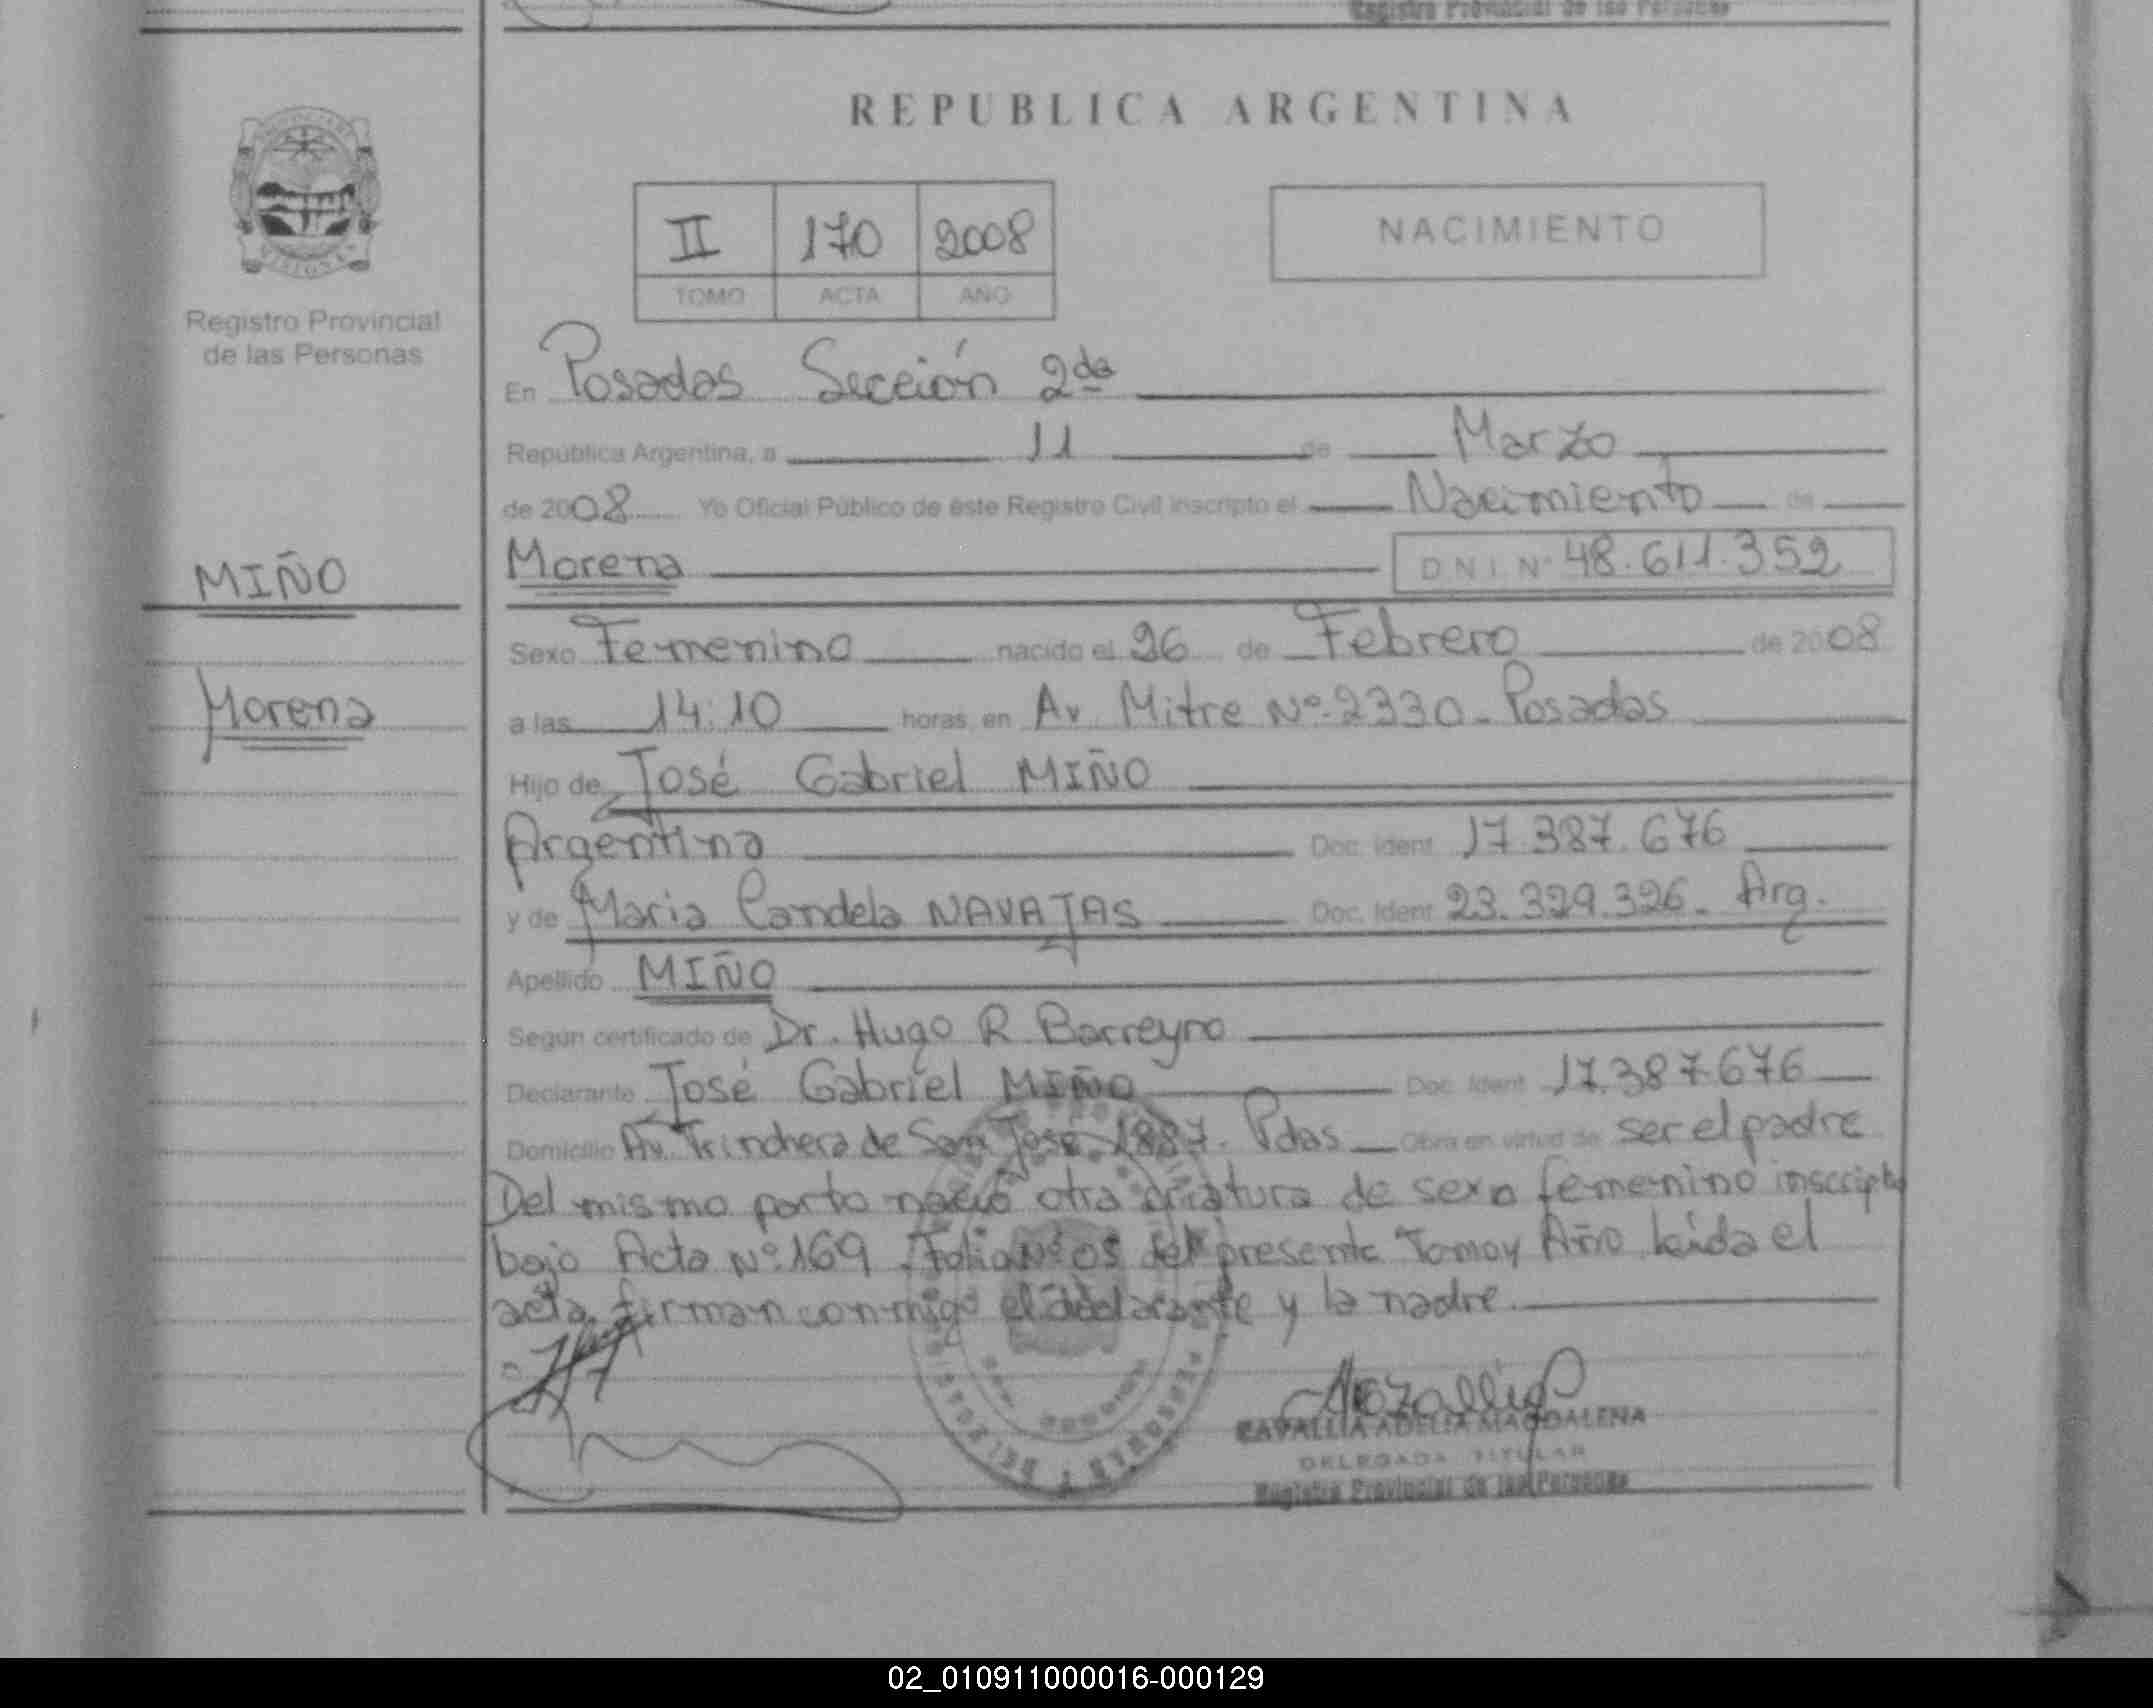 Registro Provincial de las Personas
REPUBLICA ARGENTINA
II 170 2008
TOMO ACTA AÑO
NACIMIENTO
MISIONES
Registro Provincial
de las Personas
En Posadas Sección 2da
República Argentina, a 11 de Marzo
de 2008 Yo Oficial Público de éste Registro Civil inscripto el Nacimiento de
MIÑO
Morena D N I N° 48.611.352
Sexo Femenino nacido el 26 de Febrero de 2008
Morena
a las 14:10 horas, en Av. Mitre Nº 2330 - Posadas
Hijo de José Gabriel MIÑO
Argentina Doc. Ident 17.387.676
y de Maria Candela NAVAJAS Doc. Ident 23.329.326 - Arg.
Apellido MIÑO
Según certificado de Dr. Hugo R Barreyro
Declarante José Gabriel MIÑO Doc. Ident 17.387.676
Domicilio Av. Trinchera de San José 1887. Pdas Obra en virtud de ser el padre
Del mismo parto nació otra criatura de sexo femenino inscripta
bajo Acta Nº 169 del presente Tomo y Año leida el
acta, firman conmigo el declarante y la madre.
CAVALLIA ADELIA MAGDALENA
DELEGADA TITULAR
Registro Provincial de las Personas
02_010911000016-000129